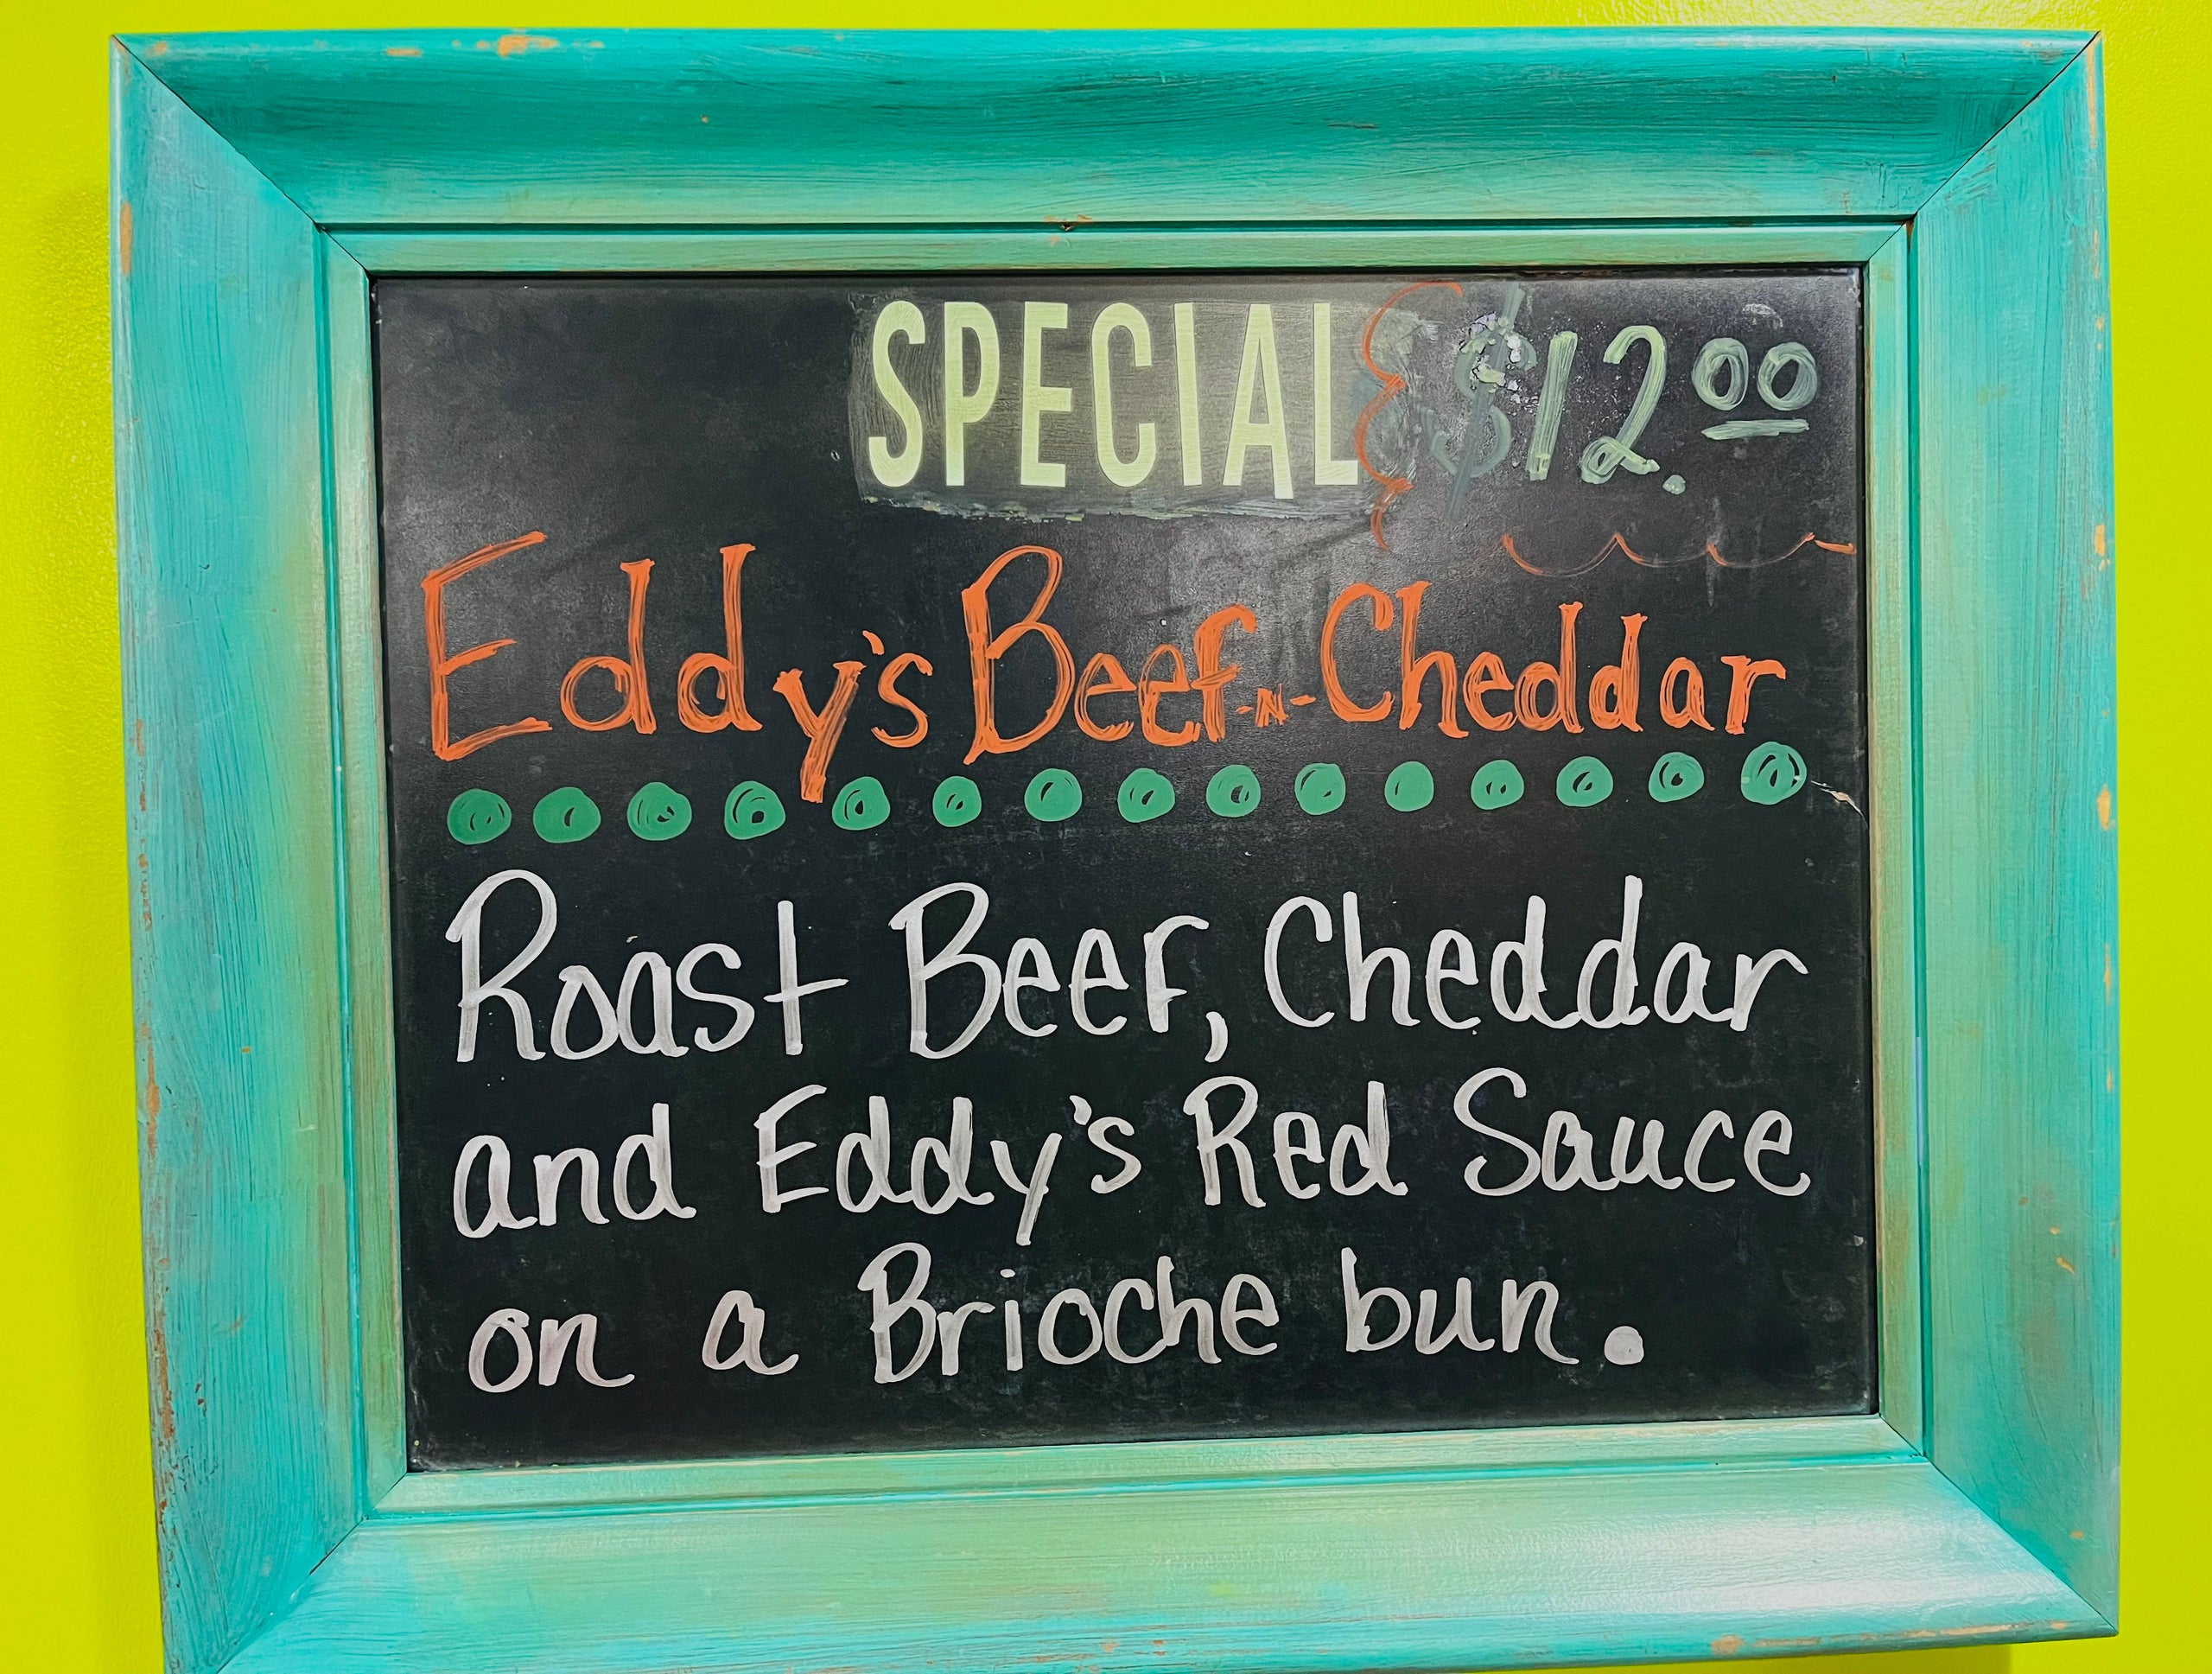 SPECIAL $12.00
Eddy's Beef-N-Cheddar
Roast Beef, Cheddar
and Eddy's Red Sauce
on a Brioche bun.